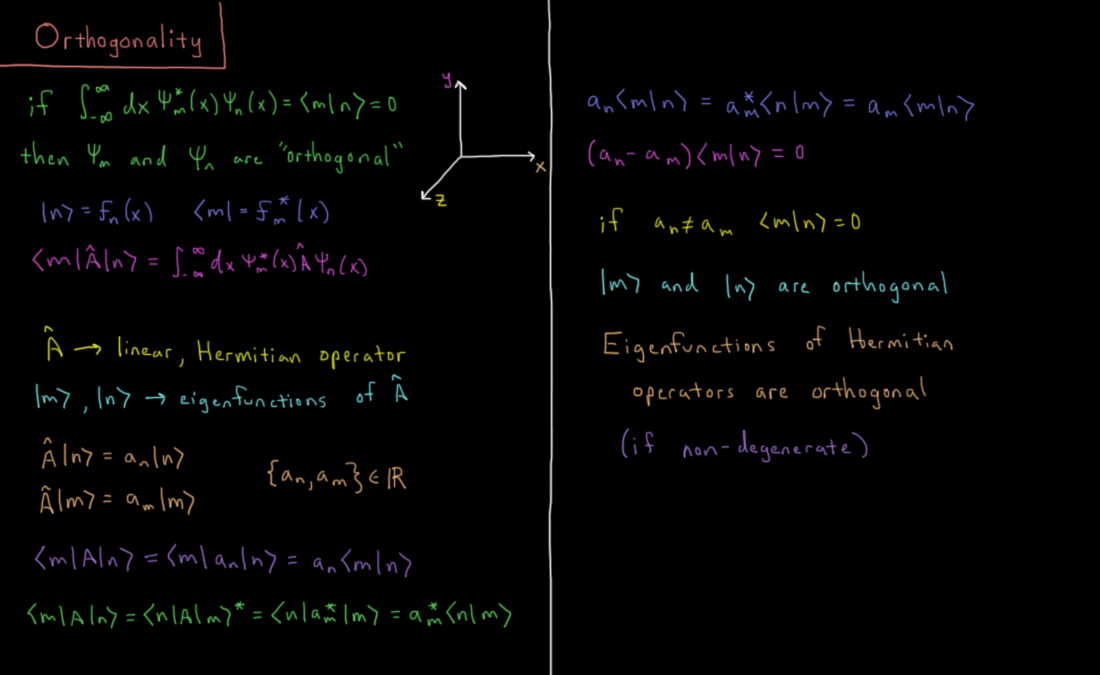 Orthogonality
if ∫_{-∞}^{∞} dx Ψ_m^*(x) Ψ_n(x) = ⟨m|n⟩ = 0
then Ψ_m and Ψ_n are "orthogonal"
y
x
z
|n⟩ = f_n(x)  ⟨m| = f_m^*(x)
⟨m|Â|n⟩ = ∫_{-∞}^{∞} dx Ψ_m^*(x) Â Ψ_n(x)
Â → linear, Hermitian operator
|m⟩, |n⟩ → eigenfunctions of Â
Â|n⟩ = a_n|n⟩
Â|m⟩ = a_m|m⟩
{a_n, a_m} ∈ ℝ
⟨m|A|n⟩ = ⟨m|a_n|n⟩ = a_n⟨m|n⟩
⟨m|A|n⟩ = ⟨n|A|m⟩^* = ⟨n|a_m^*|m⟩ = a_m^*⟨n|m⟩
a_n⟨m|n⟩ = a_m^*⟨n|m⟩ = a_m⟨m|n⟩
(a_n - a_m)⟨m|n⟩ = 0
if a_n ≠ a_m ⟨m|n⟩ = 0
|m⟩ and |n⟩ are orthogonal
Eigenfunctions of Hermitian
operators are orthogonal
(if non-degenerate)